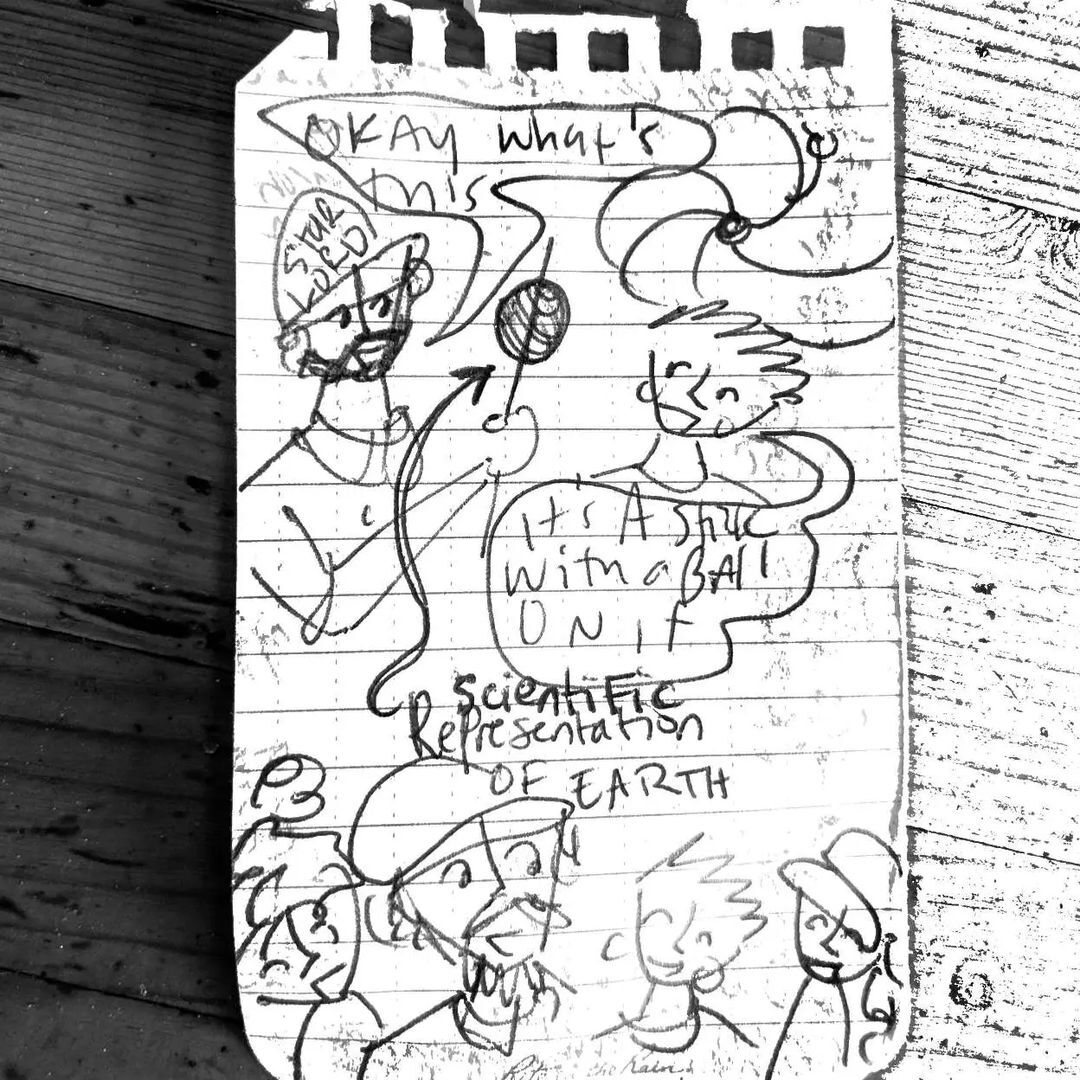 OKAY what's
this
STAR
LORD!
It's A Stick
With a BAll
ON it
Scientific
Representation
OF EARTH